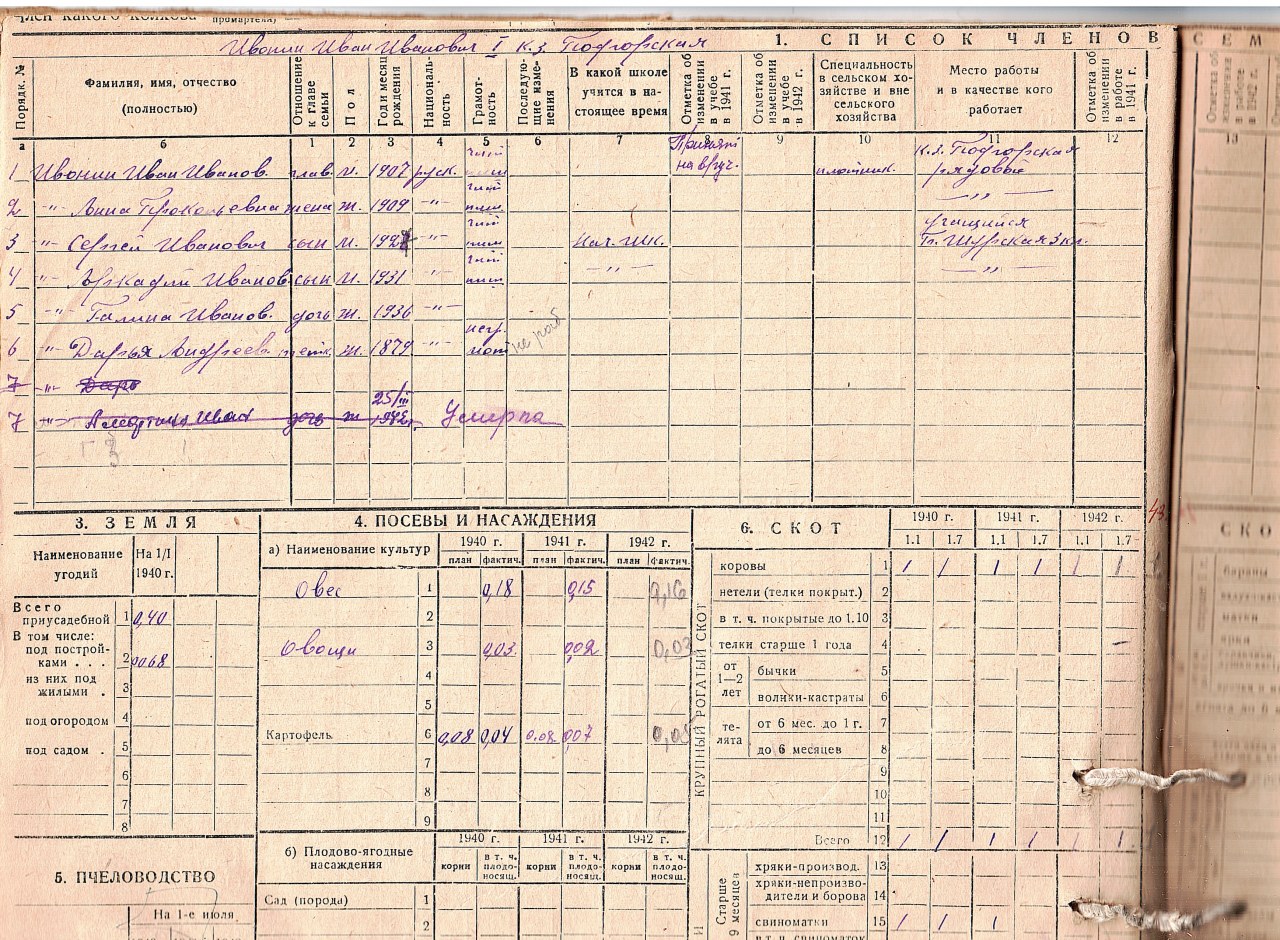 член какого колхоза промартели)
Ивонин Иван Иванович I к.з. Подгорская
1. СПИСОК ЧЛЕНОВ СЕМ
Порядк. №
Фамилия, имя, отчество (полностью)
Отношение к главе семьи
Пол
Год и месяц рождения
Националь-ность
Грамот-ность
Последую-щие изме-нения
В какой школе учится в на-стоящее время
Отметка об изменении в учебе в 1941 г.
Отметка об изменении в учебе в 1942 г.
Специальность в сельском хо-зяйстве и вне сельского хозяйства
Место работы и в качестве кого работает
Отметка об изменении в работе в 1941 г.
Отметка об изменении в работе в 1942 г.
а б 1 2 3 4 5 6 7 8 9 10 11 12 13
1 Ивонин Иван Иванов. глав. м. 1907 руск. плотник. к.з. Подгорская рядовой
2 -"- Анна Прокопьевна жена ж. 1909 -"- -"-
3 -"- Сергей Иванович сын м. -"- Нач. шк. учащийся
4 -"- Аркадий Иванов. сын м. 1931 -"- -"- -"-
5 -"- Галина Иванов. дочь ж. 1936 -"-
6 -"- Дарья Андреев. ж. 1879 -"- негр.
7 -"- Дарь
7 -"- Иван дочь ж 25/III 1942г. Умерла
3. ЗЕМЛЯ
Наименование угодий
На 1/I 1940 г.
Всего приусадебной 1 0,40
В том числе:
под построй-ками . . . 2 0068
из них под жилыми . 3
под огородом 4
под садом . 5
6
7
8
5. ПЧЕЛОВОДСТВО
На 1-е июля
4. ПОСЕВЫ И НАСАЖДЕНИЯ
а) Наименование культур
1940 г. 1941 г. 1942 г.
план фактич. план фактич. план фактич.
Овес 1 0,18 0,15 0,16
2
Овощи 3 0,03 0,02 0,03
4
5
Картофель 6 0,08 0,04 0.08 0,07
7
8
9
б) Плодово-ягодные насаждения
1940 г. 1941 г. 1942 г.
корни в т. ч. плодо-носящ. корни в т. ч. плодо-носящ. корни в т. ч. плодо-носящ.
Сад (порода) 1
2
6. СКОТ
1940 г. 1941 г. 1942 г.
1.1 1.7 1.1 1.7 1.1 1.7
КРУПНЫЙ РОГАТЫЙ СКОТ
коровы 1 1 1 1 1 1 1
нетели (телки покрыт.) 2
в т. ч. покрытые до 1.10 3
телки старше 1 года 4
от 1—2 лет
бычки 5
волики-кастраты 6
те-лята
от 6 мес. до 1 г. 7
до 6 месяцев 8
9
10
11
Всего 12 1 1 1 1 1 1
Старше 9 месяцев
хряки-производ. 13
хряки-непроизво-дители и борова 14
свиноматки 15 1 1 1
в т. ч. свиноматок
СКО
бараны
матки
ярки